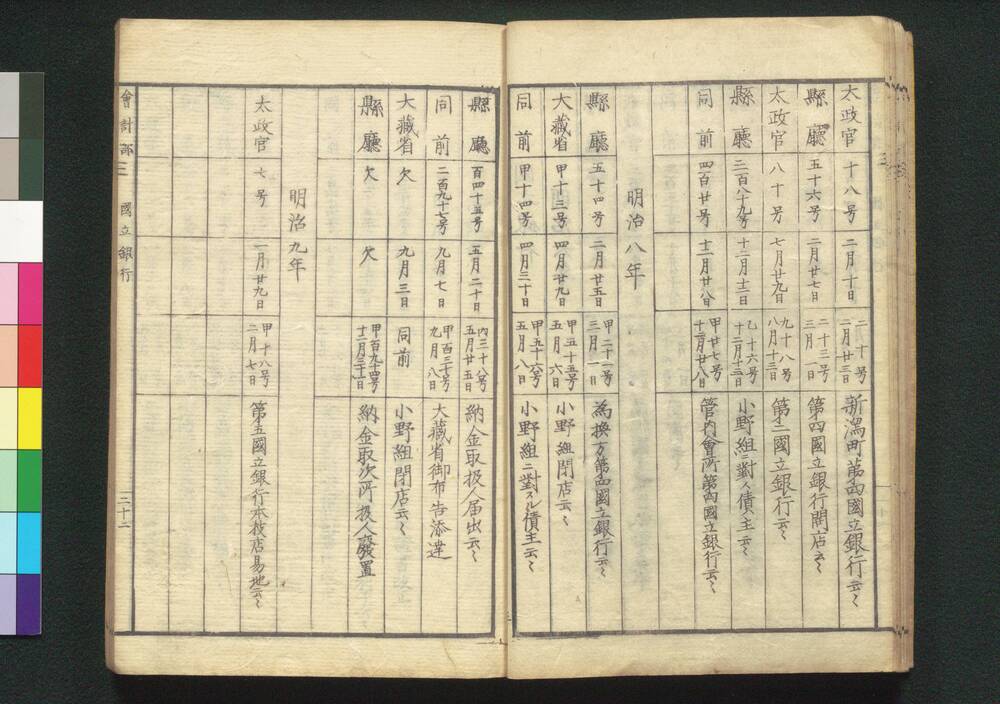 太政官 十八号 二月十日 二十号 二月廿三日 新潟町第四國立銀行云々
縣廳 五十六号 二月廿七日 二十三号 三月 日 第四國立銀行開店云々
太政官 八十号 七月廿九日 九十八号 八月十三日 第二國立銀行云々
縣廳 三百八十九号 十二月十二日 乙十六号 十二月十三日 小野組ニ對ス債主云々
同前 四百廿号 十二月廿八日 甲廿七号 十二月廿八日 管内會所第四國立銀行云々
明治八年
縣廳 五十四号 二月廿五日 甲二十一号 三月一日 為換方第四國立銀行云々
大藏省 甲十三号 四月廿九日 甲五十五号 五月六日 小野組閉店云々
同前 甲十四号 四月三十日 甲五十六号 五月八日 小野組ニ對スル債主云々
縣廳 百四十五号 五月二十日 丙三十八号 五月廿五日 納金取扱人届出云々
同前 二百九十七号 九月七日 甲百三十号 九月八日 大藏省御布告添達
大藏省 欠 九月三日 同前 小野組閉店云々
縣廳 欠 欠 甲百九十四号 十二月三十一日 納金取次所扱人廢置
明治九年
太政官 七号 一月廿九日 甲十八号 二月七日 第五國立銀行本支店易地云々
會計部三 國立銀行 三十二